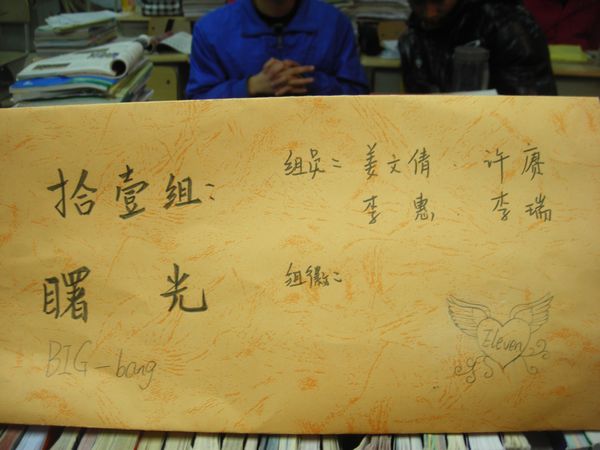 拾壹组:
曙 光
BIG-bang
组员: 姜文倩 许赓
李 惠 李瑞
组徽:
Eleven